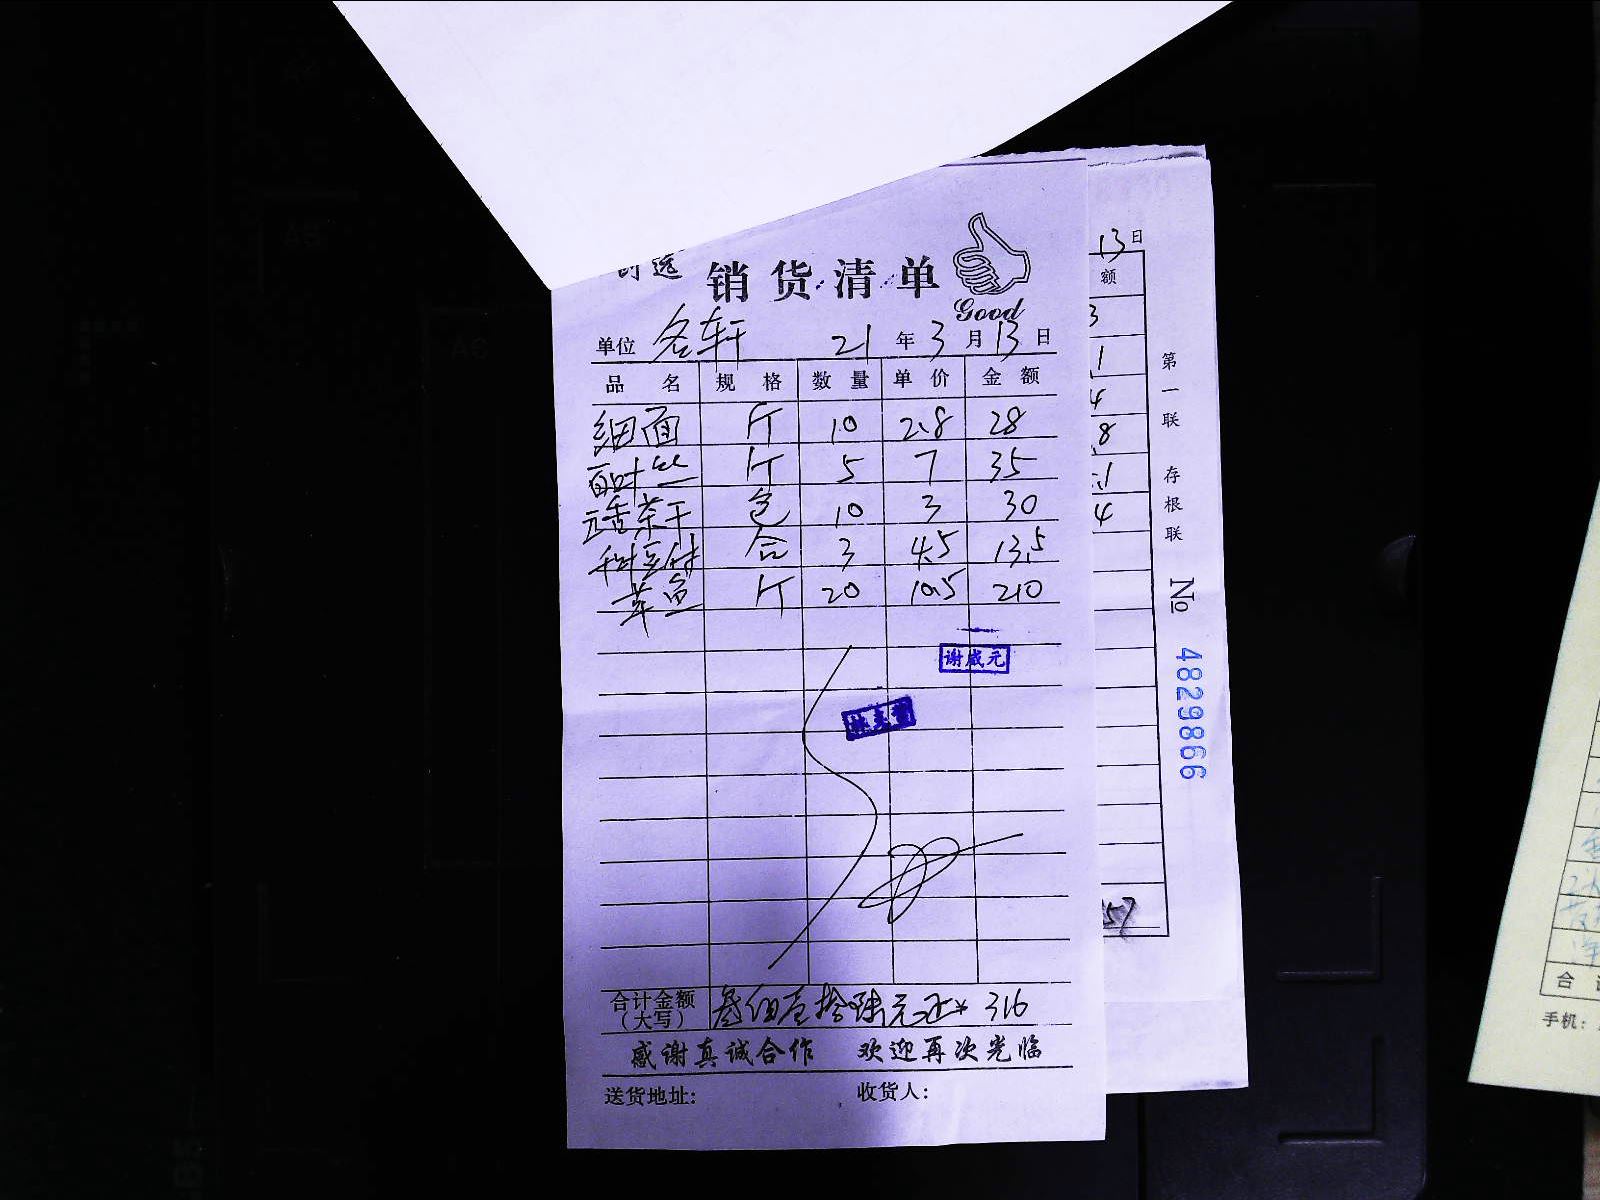 销货清单
Good
单位 名轩 21年3月13日
品名 规格 数量 单价 金额
细面 斤 10 2.8 28
斤 5 7 35
茶干 包 10 3 30
合 3 4.5 13.5
斤 20 10.5 210
谢成元
合计金额(大写) 叁佰壹拾陆元正 ¥316
感谢真诚合作 欢迎再次光临
送货地址: 收货人:
13日
额
3
1
4
8
1
4
57
第一联 存根联
№ 4829866
合
手机: